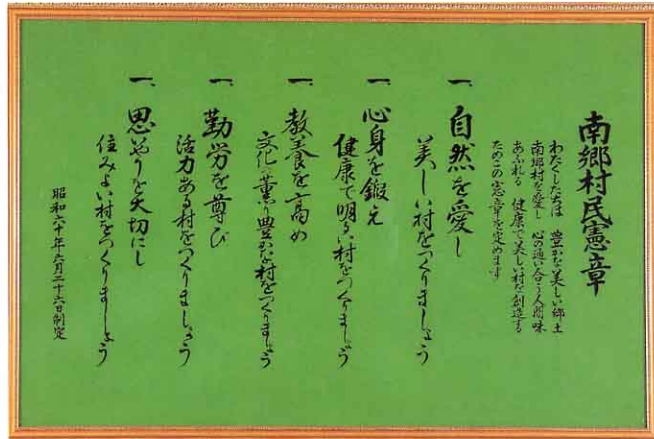 南郷村民憲章
わたくしたちは 豊かな美しい郷土
南郷村を愛し 心の通い合う人間味
あふれる 健康で美しい村を創造する
ためこの憲章を定めます
一、自然を愛し
美しい村をつくりましょう
一、心身を鍛え
健康で明るい村をつくりましょう
一、教養を高め
文化の薫り豊かな村をつくりましょう
一、勤労を尊び
活力ある村をつくりましょう
一、思いやりを大切にし
住みよい村をつくりましょう
昭和六十年六月二十六日制定